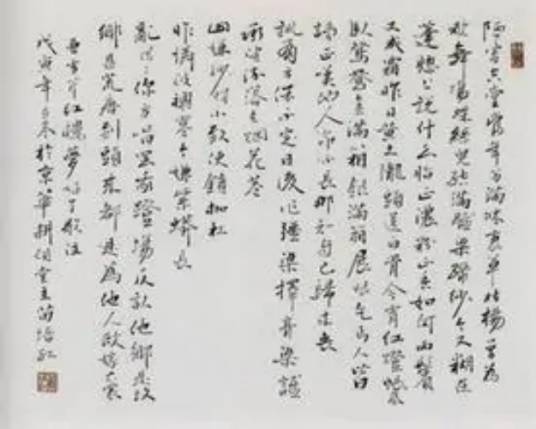 陋室空堂當年笏滿床衰草枯楊曾為
歌舞場蛛絲兒結滿雕梁綠紗今又糊在
蓬窗上說什么脂正濃粉正香如何兩鬢
又成霜昨日黃土隴頭送白骨今宵紅燈帳底
臥鴛鴦金滿箱銀滿箱展眼乞丐人皆
謗正嘆他人命不長那知自己歸來喪
訓有方保不定日後作強梁擇膏粱誰
承望流落在烟花巷
因嫌紗帽小致使鎖枷杠
昨憐破襖寒今嫌紫蟒長
亂哄哄你方唱罷我登場反認他鄉是故
鄉甚荒唐到頭來都是為他人做嫁衣裳
曹雪芹紅樓夢好了歌注
戊寅年於京華耕堂主